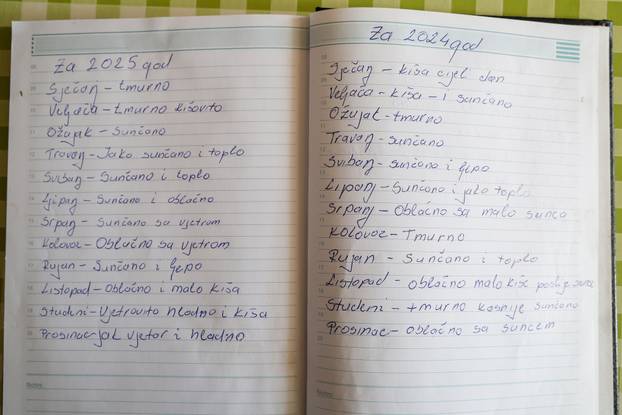 Za 2025 god
Sječanj - tmurno
Veljača - tmurno kišovito
Ožujak - Sunčano
Travanj - Jako sunčano i toplo
Svibanj - Sunčano i toplo
Lipanj - Sunčano i oblačno
Srpanj - Sunčano sa vjetrom
Kolovoz - Oblačno sa vjetrom
Rujan - Sunčano i ljepo
Listopad - Oblačno i malo kiša
Studeni - Vjetrovito hladno i kiša
Prosinac - jak vjetar i hladno
Za 2024 god
Sječanj - kiša cijel dan
Veljača - kiša - i sunčano
Ožujak - tmurno
Travanj - sunčano
Svibanj - sunčano i ljepo
Lipanj - Sunčano i jako toplo
Srpanj - Oblačno sa malo sunca
Kolovoz - Tmurno
Rujan - Sunčano i toplo
Listopad - oblačno malo kiše poslije
Studeni - tmurno kasnije sunčano
Prosinac - oblačno sa suncem